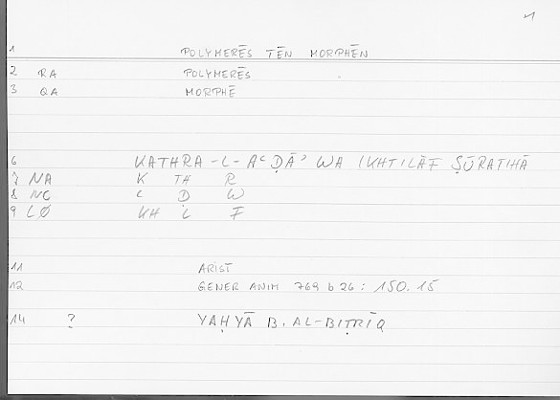 1
1 POLYMERĒS TĒN MORPHĒN
2 RA POLYMERĒS
3 QA MORPHĒ
6 KATHRA -L- AʿḌĀʾ WA IKHTILĀF ṢŪRATIHĀ
7 NA K TH R
8 NC ʿ Ḍ W
9 LØ KH L F
11 ARIST
12 GENER ANIM 769 b 26 : 150.15
14 ? YAḤYĀ B. AL-BIṬRĪQ